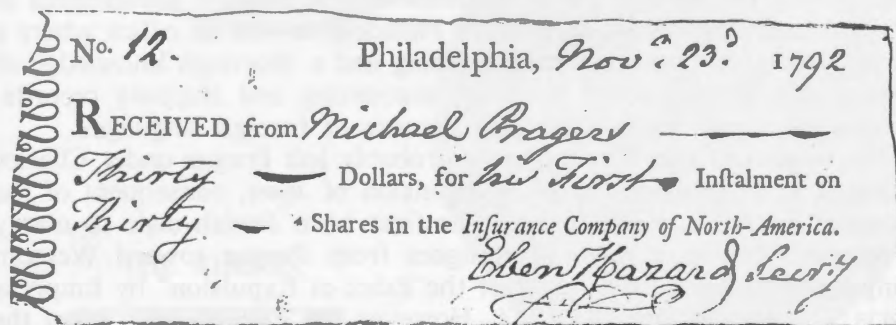 No. 12. Philadelphia, Novr. 23d. 1792
RECEIVED from Michael Pragers
Thirty Dollars, for his First Inſtalment on
Thirty Shares in the Inſurance Company of North-America.
Eben Hazard, Secr'y